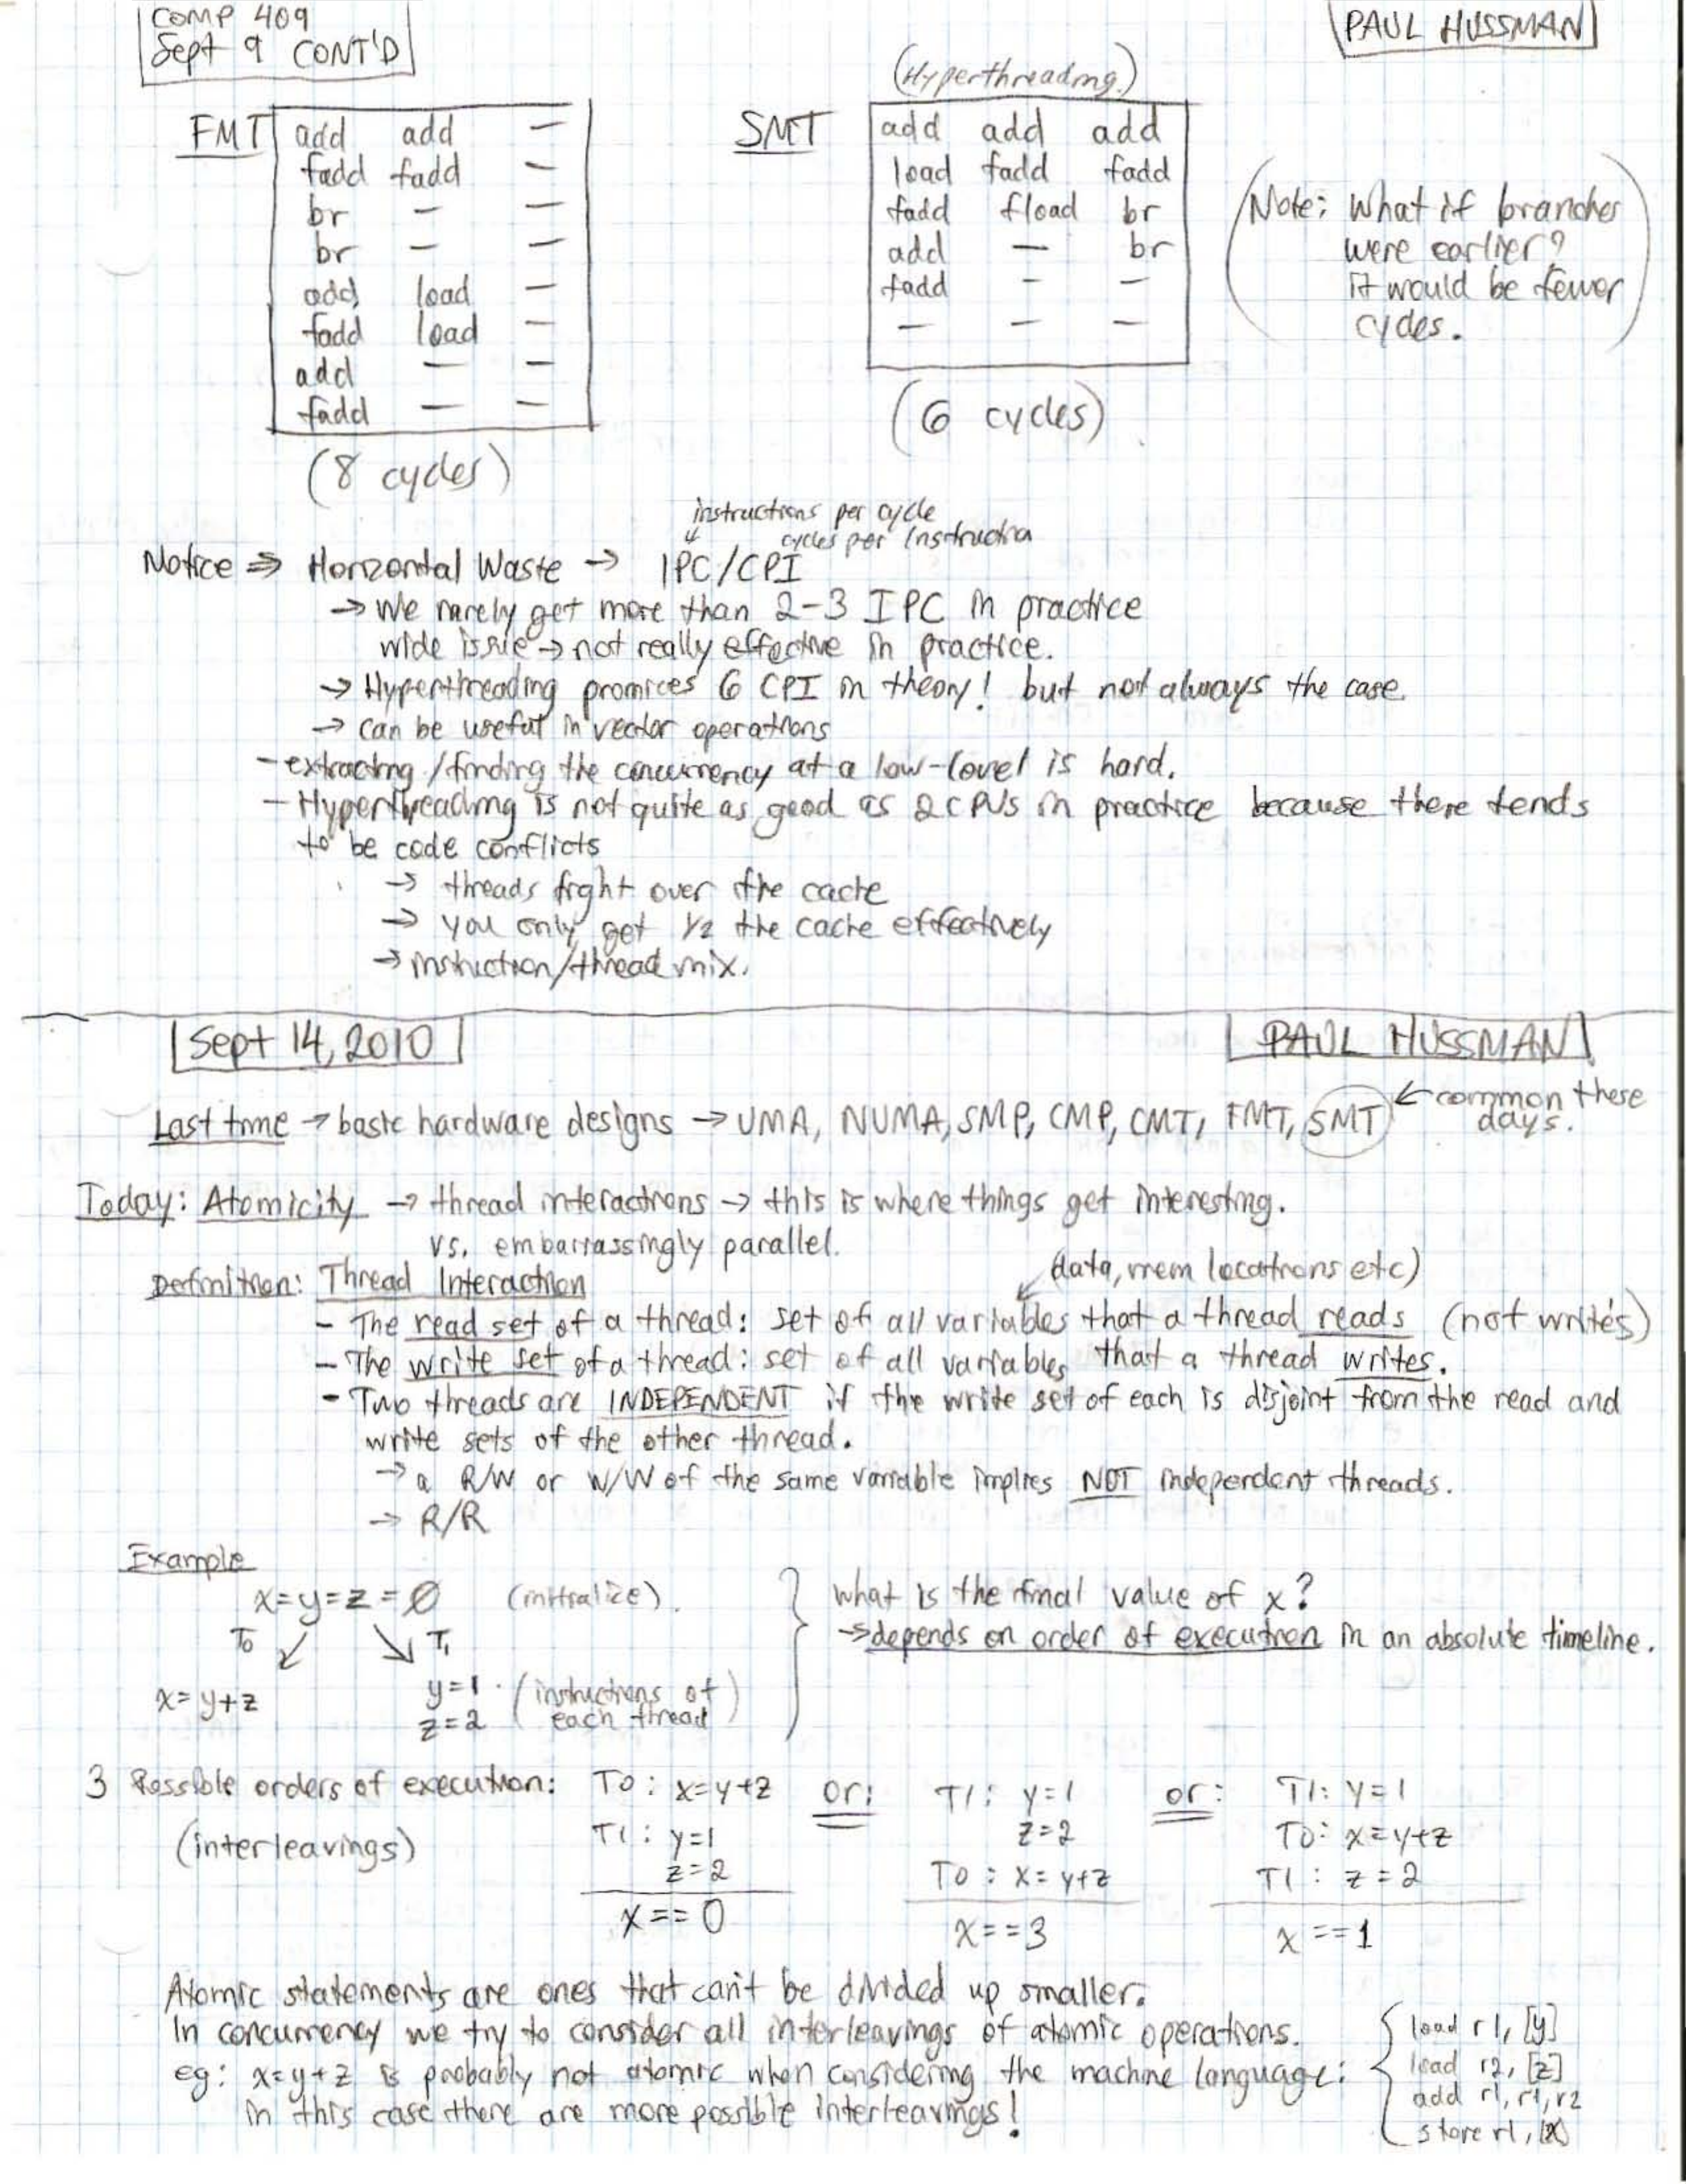 COMP 409
Sept 9 CONT'D
PAUL HUSSMAN
(Hyperthreading)
FMT
add add —
fadd fadd —
br — —
br — —
add load —
fadd load —
add — —
fadd — —
(8 cycles)
SMT
add add add
load fadd fadd
fadd fload br
add — br
fadd - —
— — —
(6 cycles)
(Note: What if branches
were earlier?
it would be fewer
cycles.)
instructions per cycle
cycles per instruction
Notice ⇒ Horizontal Waste → IPC/CPI
→ We rarely get more than 2-3 IPC in practice
wide issue → not really effective in practice.
→ Hyperthreading promices 6 CPI in theory! but not always the case.
→ can be useful in vector operations
- extracting/finding the concurrency at a low-level is hard.
- Hyperthreading is not quite as good as 2 CPUs in practice because there tends
to be code conflicts
→ threads fight over the cache
→ you only get 1/2 the cache effectively
→ instruction/thread mix.
Sept 14, 2010
PAUL HUSSMAN
Last time → basic hardware designs → UMA, NUMA, SMP, CMP, CMT, FMT, SMT ← common these
days.
Today: Atomicity → thread interactions → this is where things get interesting.
vs. embarrassingly parallel.
Definition: Thread Interaction
(data, mem locations etc)
- The read set of a thread: set of all variables that a thread reads (not writes)
- The write set of a thread: set of all variables that a thread writes.
- Two threads are INDEPENDENT if the write set of each is disjoint from the read and
write sets of the other thread.
→ a R/W or W/W of the same variable implies NOT independent threads.
→ R/R
Example
x=y=z=0 (initialize).
T0 T1
x=y+z
y=1
z=2
(instructions of
each thread)
what is the final value of x?
→ depends on order of execution in an absolute timeline.
3 Possible orders of execution:
(interleavings)
T0: x=y+z
T1: y=1
z=2
x==0
or:
T1: y=1
z=2
T0: x=y+z
x==3
or:
T1: y=1
T0: x=y+z
T1: z=2
x==1
Atomic statements are ones that can't be divided up smaller.
In concurrency we try to consider all interleavings of atomic operations.
eg: x=y+z is probably not atomic when considering the machine language:
in this case there are more possible interleavings!
load r1, [y]
load r2, [z]
add r1, r1, r2
store r1, [x]